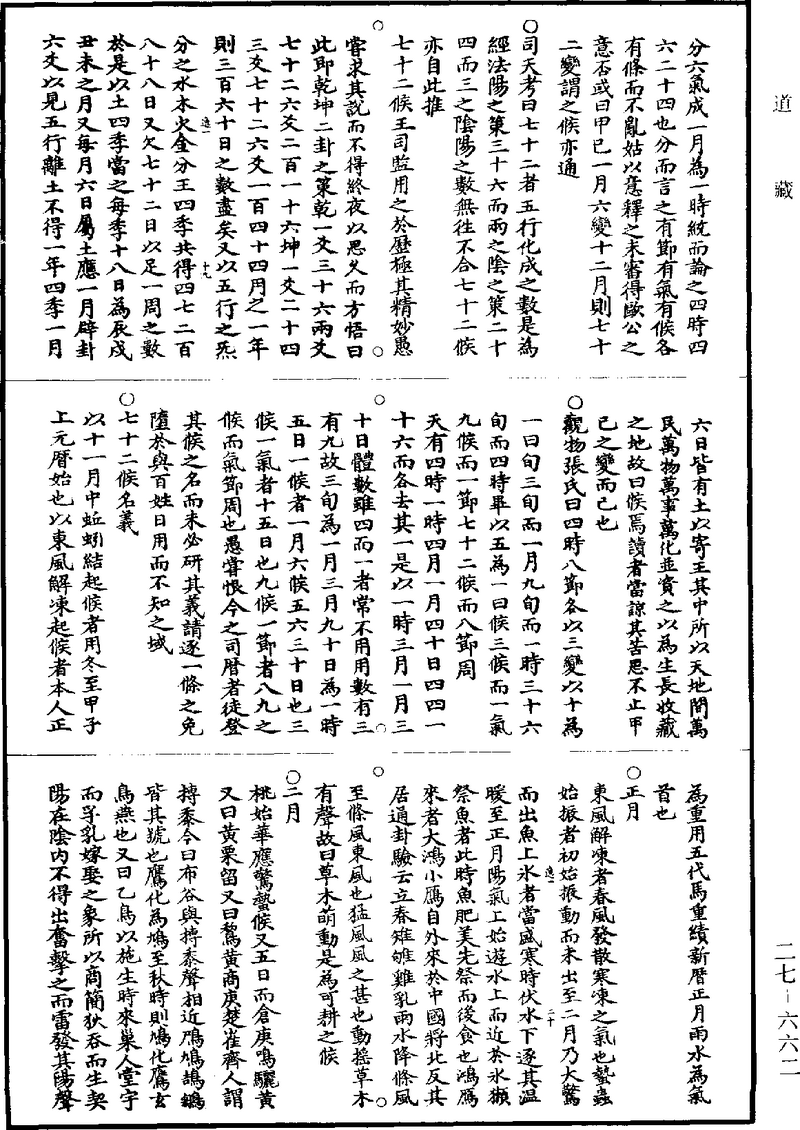 道藏
分六氣成一月為一時統而論之四時四
六二十四也分而言之有節有氣有候各
有條而不亂姑以意釋之未審得歐公之
意否或曰甲巳一月六變十二月則七十
二變謂之候亦通
○司天考曰七十二者五行化成之數是為
經法陽之策三十六而兩之陰之策二十
四而三之陰陽之數無往不合七十二候
亦自此推
七十二候王司監用之於曆極其精妙愚
嘗求其說而不得終夜以思久而方悟曰
此即乾坤二卦之策乾一爻三十六兩爻
七十二六爻二百一十六坤一爻二十四
三爻七十二六爻一百四十四用之一年
則三百六十日之數盡矣又以五行之炁
分之水木火金分王四季共得四七二百
八十八日又欠七十二日以足一周之數
於是以土四季當之每季十八日為辰戌
丑未之月又每月六日屬土應一月辟卦
六爻以見五行離土不得一年四季一月
六日皆有土以寄王其中所以天地間萬
民萬物萬事萬化並資之以為生長收藏
之地故曰候焉讀者當諒其苦思不止甲
己之變而已也
○觀物張氏曰四時八節各以三變以十為
一曰旬三旬而一月九旬而一時三十六
旬而四時畢以五為一曰候三候而一氣
九候而一節七十二候而八節周
天有四時一時四月一月四十日四四一
十六而各去其一是以一時三月一月三
十日體數雖四而一者常不用用數有三
有九故三旬為一月三月九十日為一時
五日一候者一月六候五六三十日也三
候一氣者十五日也九候一節者八九之
候而氣節周也愚嘗恨今之司曆者徒登
其候之名而未必研其義請逐一條之免
墮於與百姓日用而不知之域
○七十二候名義
以十一月中蚯蚓結起候者用冬至甲子
上元曆始也以東風解凍起候者本人正
為重用五代馬重績新曆正月雨水為氣
首也
○正月
東風解凍者春風發散寒凍之氣也蟄蟲
始振者初始振動而未出至二月乃大驚
而出魚上氷者當盛寒時伏水下逐其温
暖至正月陽氣上始遊水上而近於氷獺
祭魚者此時魚肥美先祭而後食也鴻鴈
來者大鴻小鴈自外來於中國將北反其
居通卦驗云立春雉雊雞乳雨水降條風
至條風東風也猛風風之甚也動搖草木
有聲故曰草木萌動是為可耕之候
○二月
桃始華應驚蟄候又五日而倉庚鳴驪黃
又曰黃栗留又曰鶩黃商庚楚雀齊人謂
摶黍今曰布谷與摶黍聲相近鳲鳩鴶鵴
皆其號也鷹化為鳩至秋時則鳩化鷹玄
鳥燕也又曰乙鳥以施生時來巢人堂宇
而孚乳嫁娶之象所以商簡狄吞而生契
陽在陰内不得出奮擊之而雷發其陽聲
二七－六六二